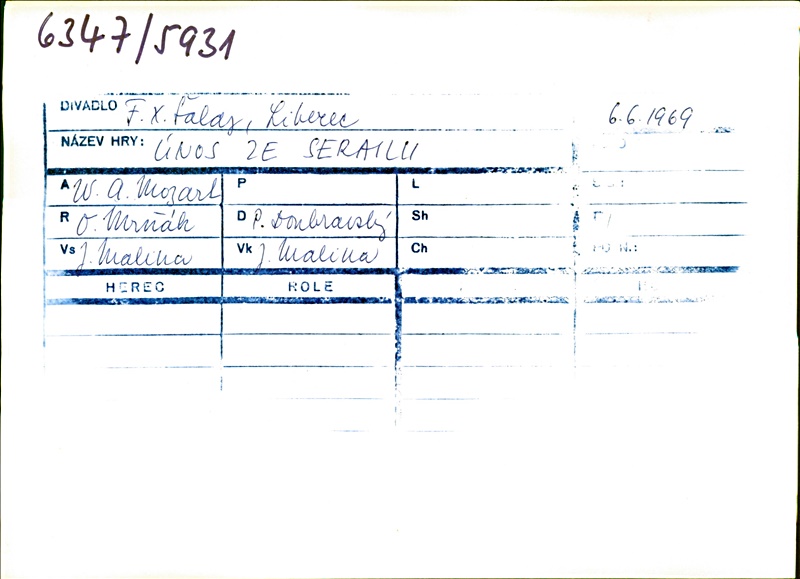 6347/5931
DIVADLO F. X. Šaldy, Liberec 6.6.1969
NÁZEV HRY: ÚNOS ZE SERAILU
A W. A. Mozart P L
R O. Mrňák D P. Doubravský Sh
Vs J. Malina Vk J. Malina Ch
HEREC ROLE